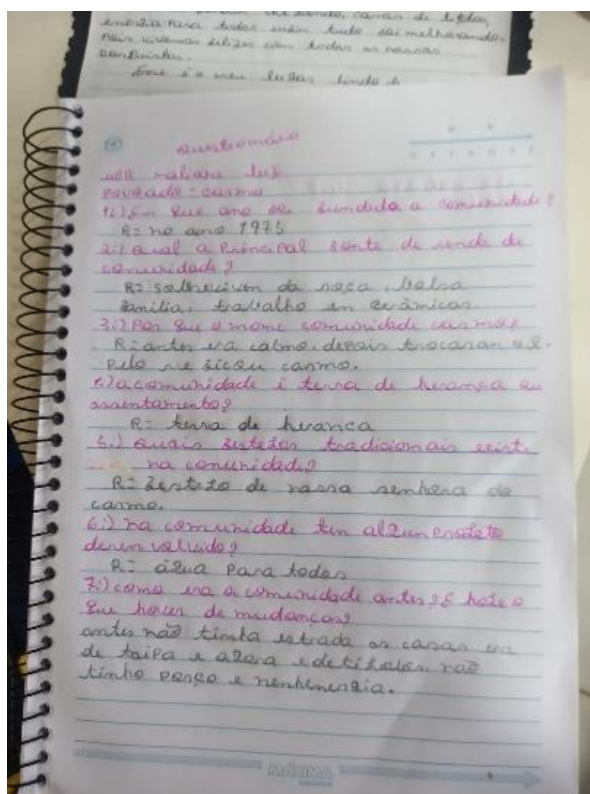 energia para todos enfim tudo sai melhorando.
Pois vivemos felizes com todas as nossas
conquistas.
Esse é o meu lugar lindo
questionário
maliana luz
povoado: carmo
1:) Em que ano foi fundada a comunidade?
R= no ano 1975
2:) a qual a Principal fonte de renda da
comunidade?
R= sobrevivem da roça, bolsa
familia, trabalho em cerâmicas.
3:) Por que o nome comunidade carmo?
R= antes era calmo, depois trocaram o l.
Pelo r e ficou carmo.
4:) a comunidade é terra de herança ou
assentamento?
R= terra de herança
5:) Quais festejos tradicionais exist.
na comunidade?
R= festejo de nossa senhora do
carmo.
6:) na comunidade tem algum Projeto
desenvolvido?
R= água Para todos
7:) como era a comunidade antes? E hoje o
que houve de mudanças?
antes não tinha estrada as casas era
de taipa e agora e de tijolos. não
tinha poço e nenhenergia.
MÁXIMA